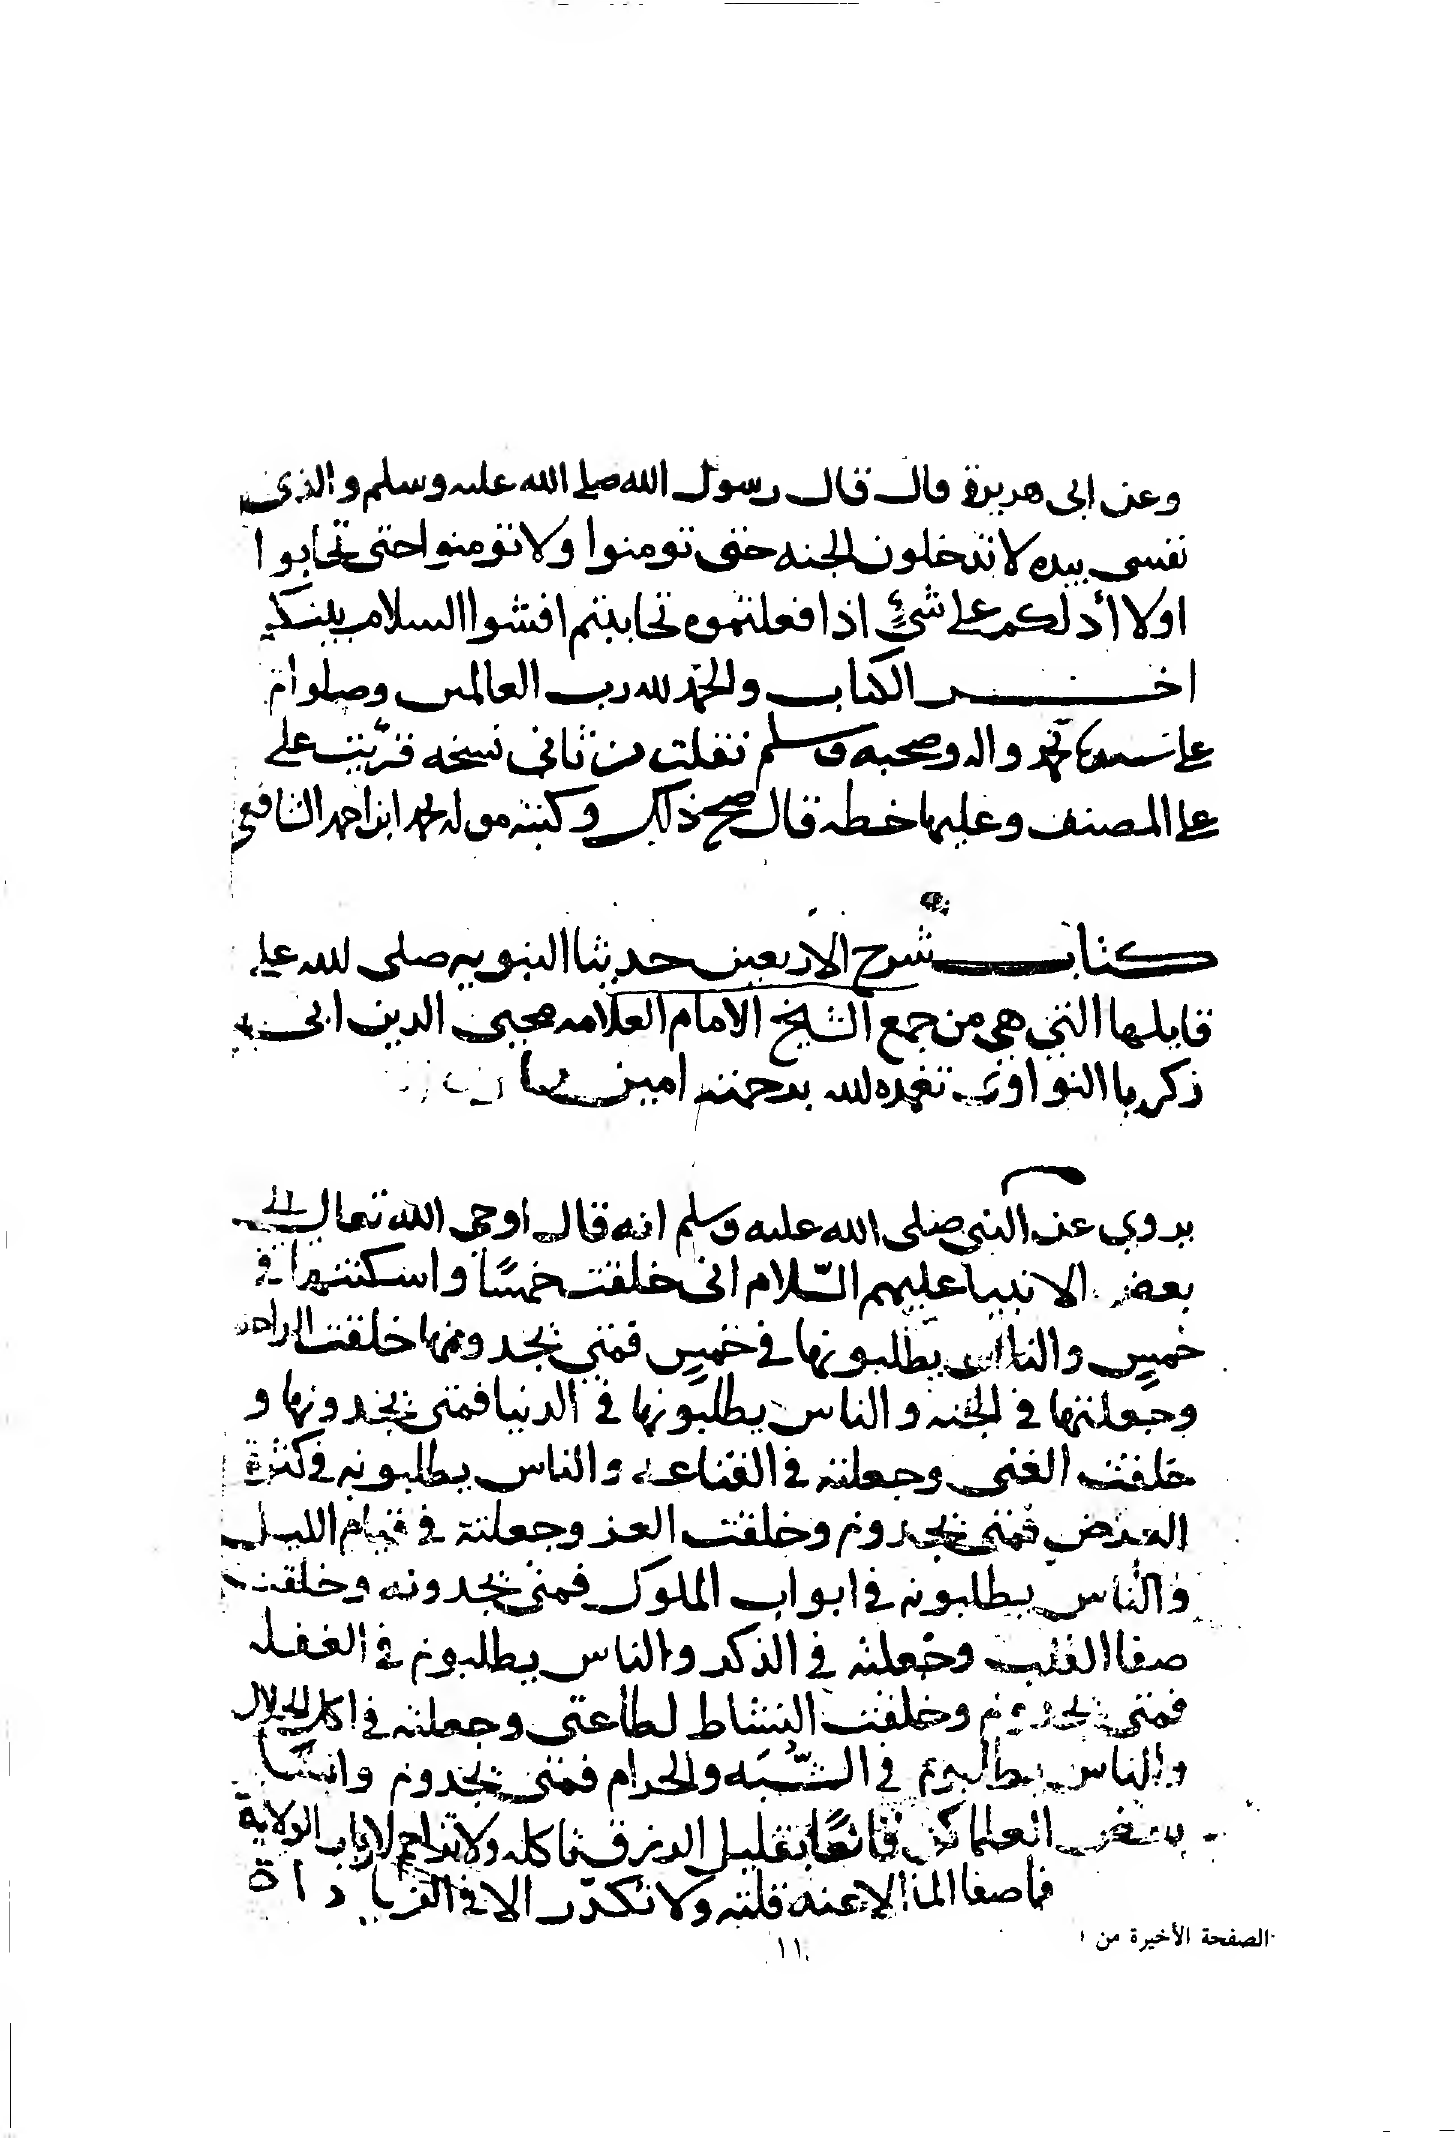 وعن ابى هريرة قال قال رسول الله صلى الله عليه وسلم والذى
نفسى بيده لا تدخلون الجنه حتى تومنوا ولا تؤمنوا حتى تحابوا
اولا أدلكم على شئٍ اذا فعلتموه تحاببتم افشوا السلام بينكم
اخر الكتاب والحمد لله رب العالمين وصلواته
على سيدنا محمد واله وصحبه وسلم نقلت من ثانى نسخه قريت على
على المصنف وعليها خطه قال صح ذلك وكتبه محمد ابن احمد الشافعى
كتاب شرح الاربعين حديثا النبويه صلى الله على
قايلها التى هى من جمع الشيخ الامام العلامه محيى الدين ابى
زكريا النواوى تغمده الله برحمته امين
يروي عن النبى صلى الله عليه وسلم انه قال اوحى الله تعالى الى
بعض الانبيا عليهم السّلام انى خلقت خمسًا واسكنتها فى
خمسٍ والناس يطلبونها فى خمسٍ فمتى يجدونها خلقت الراحه
وجعلتها فى الجنه والناس يطلبونها فى الدنيا فمتى يجدونها و
خلقت الغنى وجعلته فى القناعه والناس يطلبونه فى كثرة
العرض فمتى يجدونه وخلقت العز وجعلته فى قيام الليل
والناس يطلبونه فى ابواب الملوك فمتى يجدونه وخلقت
صفا القلب وجعلته فى الذكر والناس يطلبونه فى الغفله
فمتى يجدونه وخلقت النشاط لطاعتى وجعلته فى اكل الحلال
والناس يطلبونه فى الشّبه والحرام فمتى يجدونه وانشد
بعض العلما كن قانعًا بقليل الرزق تاكله ولا تزاحم لارباب الولاية
فما صفا الما الا عند قلته ولا تكدّر الا فى الزيادات
الصفحة الأخيرة من ا
١١